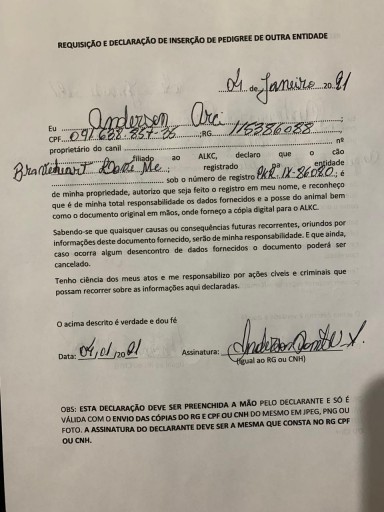 REQUISIÇÃO E DECLARAÇÃO DE INSERÇÃO DE PEDIGREE DE OUTRA ENTIDADE
04 de Janeiro 2021
Eu Anderson
CPF 091 688 857-26 ;RG 115386088 ;
proprietário do canil nº
filiado ao ALKC, declaro que o cão
registrado na entidade
sob o número de registro PKR. IX-86080; é
de minha propriedade, autorizo que seja feito o registro em meu nome, e reconheço
que é de minha total responsabilidade os dados fornecidos e a posse do animal bem
como o documento original em mãos, onde forneço a cópia digital para o ALKC.
Sabendo-se que quaisquer causas ou consequências futuras recorrentes, oriundos por
informações deste documento fornecido, serão de minha responsabilidade. E que ainda,
caso ocorra algum desencontro de dados fornecidos o documento poderá ser
cancelado.
Tenho ciência dos meus atos e me responsabilizo por ações cíveis e criminais que
possam recorrer sobre as informações aqui declaradas.
O acima descrito é verdade e dou fé
Data: 04/01/2021 Assinatura: Anderson
(igual ao RG ou CNH)
OBS: ESTA DECLARAÇÃO DEVE SER PREENCHIDA A MÃO PELO DECLARANTE E SÓ É
VÁLIDA COM O ENVIO DAS CÓPIAS DO RG E CPF OU CNH DO MESMO EM JPEG, PNG OU
FOTO. A ASSINATURA DO DECLARANTE DEVE SER A MESMA QUE CONSTA NO RG CPF
OU CNH.